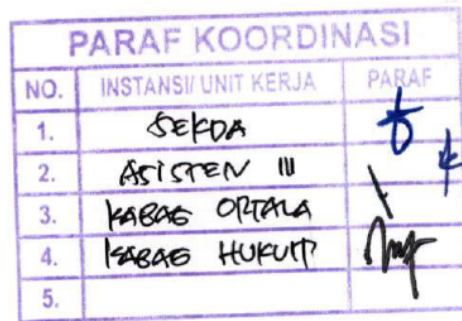 PARAF KOORDINASI
NO. INSTANSI/ UNIT KERJA PARAF
1. SEKDA
2. ASISTEN III
3. KABAG ORTALA
4. KABAG HUKUM
5.